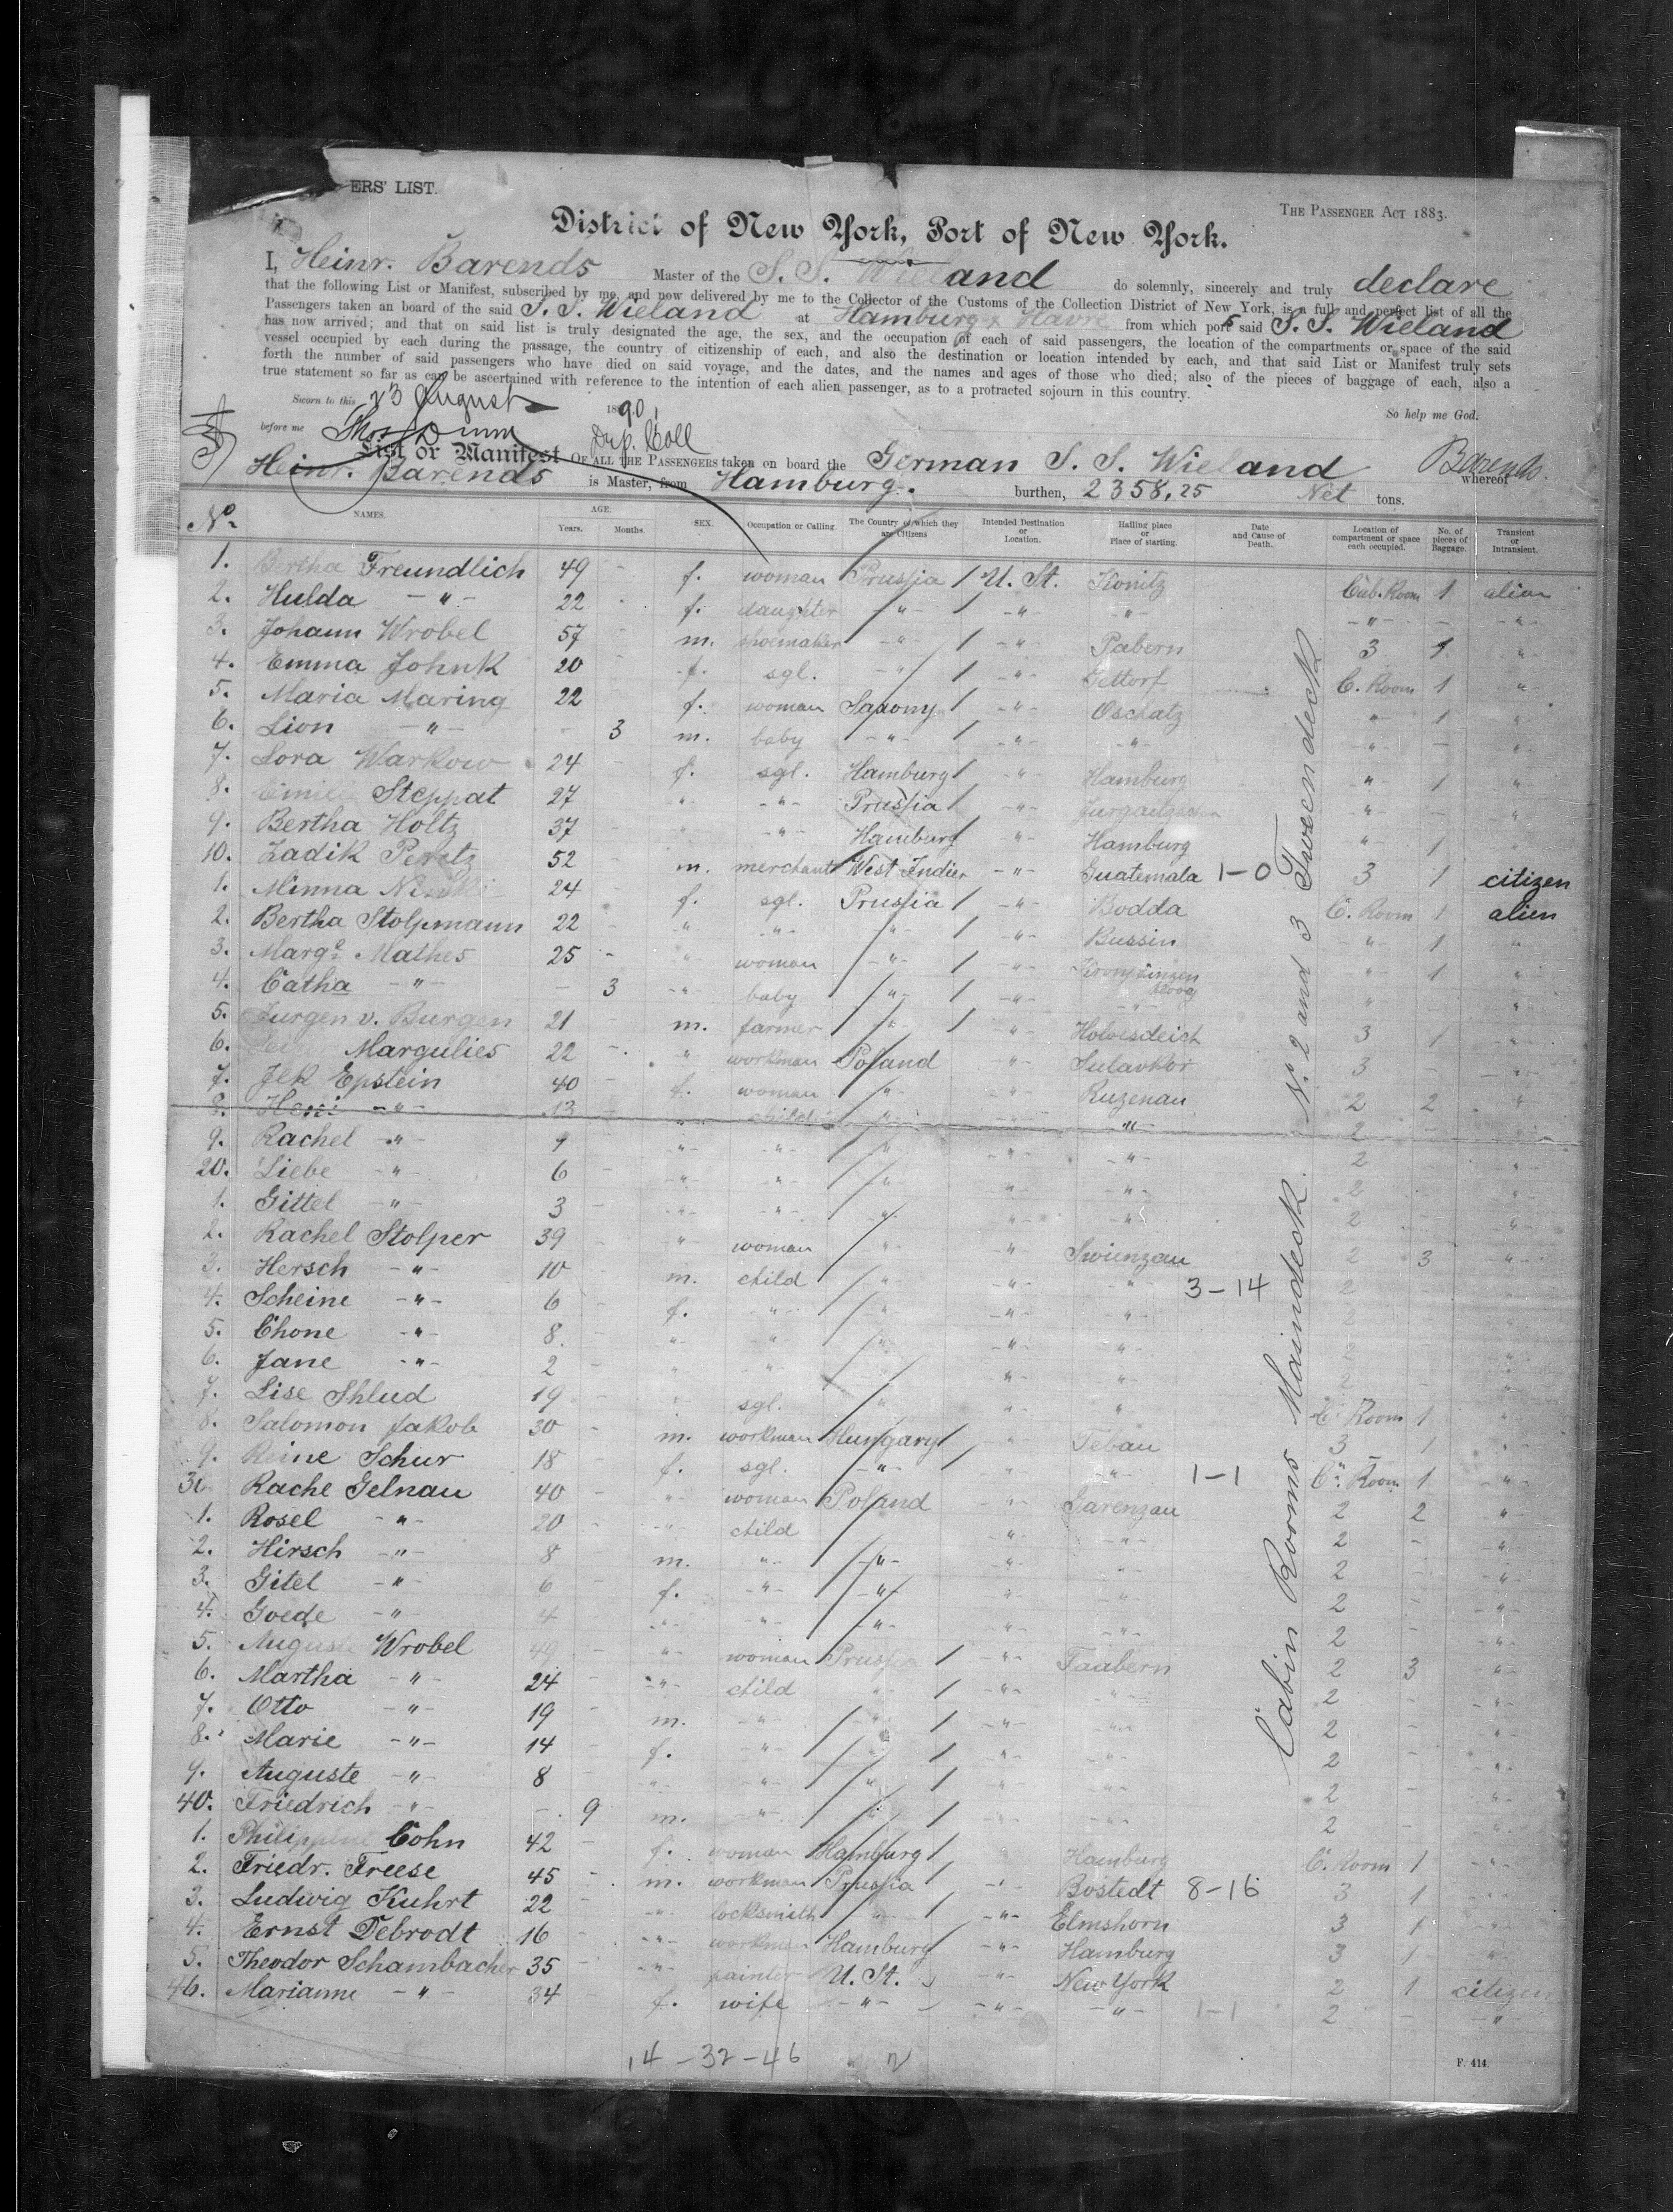 ERS' LIST.
THE PASSENGER ACT 1883.
District of New York, Port of New York.
I, Heinr. Barends Master of the S. S. Wieland do solemnly, sincerely and truly declare
that the following List or Manifest, subscribed by me, and now delivered by me to the Collector of the Customs of the Collection District of New York, is a full and perfect list of all the
Passengers taken an board of the said S. S. Wieland at Hamburg & Havre from which port said S. S. Wieland
has now arrived; and that on said list is truly designated the age, the sex, and the occupation of each of said passengers, the location of the compartments or space of the said
vessel occupied by each during the passage, the country of citizenship of each, and also the destination or location intended by each, and that said List or Manifest truly sets
forth the number of said passengers who have died on said voyage, and the dates, and the names and ages of those who died; also of the pieces of baggage of each, also a
true statement so far as can be ascertained with reference to the intention of each alien passenger, as to a protracted sojourn in this country.
Sworn to this 23 August 1890. So help me God.
before me Thos Dunn Dep. Coll
List or Manifest OF ALL THE PASSENGERS taken on board the German S. S. Wieland whereof Barends.
Heinr. Barends is Master, from Hamburg. burthen, 2358,25 Net tons.
No. NAMES. AGE: Years. Months. SEX. Occupation or Calling. The Country of which they are Citizens Intended Destination or Location. Hailing place or Place of starting. Date and Cause of Death. Location of compartment or space each occupied. No. of pieces of Baggage. Transient or Intransient.
1. Bertha Freundlich 49 - f. woman Prussia 1 U. St. Konitz Cab. Room 1 alien
2. Hulda -"- 22 f. daughter -"- 1 -"- -"- -"- - -"-
3. Johann Wrobel 57 m. shoemaker -"- 1 -"- Pabern 3 1 "
4. Emma Johnk 20 f. sgl. -"- 1 -"- Gettorf C. Room 1 "
5. Maria Maring 22 f. woman Saxony 1 -"- Oschatz " 1 "
6. Lion -"- - 3 m. baby -"- 1 -"- -"- -"- - "
7. Lora Warkow 24 f. sgl. Hamburg 1 -"- Hamburg " 1 "
8. Steppat 27 " -"- Prussia 1 -"- " - "
9. Bertha Holtz 37 " -"- Hamburg " Hamburg " 1 "
10. Zadik Peretz 52 m. merchant West Indies -"- Guatemala 1-0 3 1 citizen
1. Minna 24 f. sgl. Prussia 1 -"- Bodda C. Room 1 alien
2. Bertha Stolpmann 22 " -"- -"- 1 -"- Bussin -"- 1 "
3. Marge. Mathes 25 - " woman -"- 1 -"- " 1 "
4. Catha -"- - 3 -"- baby -"- 1 -"- -"- " - "
5. Jurgen v. Burgen 21 m. farmer -"- 1 " Holvesdeich 3 1 -"-
6. Margulies 22 - " workman Poland " Sulavkor 3 - -"-
7. Jlk Epstein 40 - f. woman " " Ruzenau 2 2 "
8. -"- 13 " child " -"- -"- 2 -
9. Rachel -"- 9 -"- -"- " -"- -"- 2 -"-
20. Liebe -"- 6 -"- -"- -"- " -"- 2 -"-
1. Gittel -"- 3 -"- -"- -"- -"- -"- 2 - -"-
2. Rachel Stolper 39 " woman " " Swienzau 2 3 -"-
3. Hersch -"- 10 m. child -"- -"- " 3-14 2 -
4. Scheine -"- 6 f. -"- -"- -"- " 2
5. Chone -"- 8. " " " -"- -"- 2 "
6. Jane -"- 2 " " " " " 2 - "
7. Lise Shlud 19 " sgl. " " " C. Room 1 "
8. Salomon Jakob 30 m. workman Hungary 1 " Tebau 3 1 "
9. Reine Schur 18 f. sgl. -"- " -"- 1-1 C. Room 1 -"-
30. Rache Gelnau 40 " woman Poland -"- Sarenzau 2 2 "
1. Rosel -"- 20 -"- child -"- -"- 2 - -"-
2. Hirsch -"- 8 m. " -"- -"- " 2 - -"-
3. Gitel -"- 6 f. -"- -"- " " 2 - -"-
4. Goede -"- 4 -"- -"- -"- -"- -"- 2 - -"-
5. Auguste Wrobel 49 " woman Prussia 1 -"- Taabern 2 3 -"-
6. Martha -"- 24 -"- child " 1 -"- -"- 2 - -"-
7. Otto -"- 19 m. -"- " 1 -"- -"- 2 - -"-
8. Marie -"- 14 f. -"- " 1 -"- -"- 2 - "
9. Auguste -"- 8 -"- -"- " 1 " " 2 - "
40. Friedrich -"- - 9 m. -"- " 1 2 - "
1. Philippine Cohn 42 f. woman Hamburg 1 Hamburg C. Room 1 -"-
2. Friedr. Freese 45 m. workman Prussia 1 -"- Bostedt 8-16 3 1 -"-
3. Ludwig Kuhrt 22 -"- locksmith " 1 -"- Elmshorn 3 1 "
4. Ernst Debrodt 16 -"- workman Hamburg 1 -"- Hamburg 3 1 "
5. Theodor Schambacher 35 -"- painter U. St. -"- New York 2 1 citizen
46. Marianne -"- 34 f. wife -"- -"- -"- 1-1 2 - -"-
No. 2 and 3 Tweendeck
Cabin Rooms Maindeck.
14-32-46
F. 414.